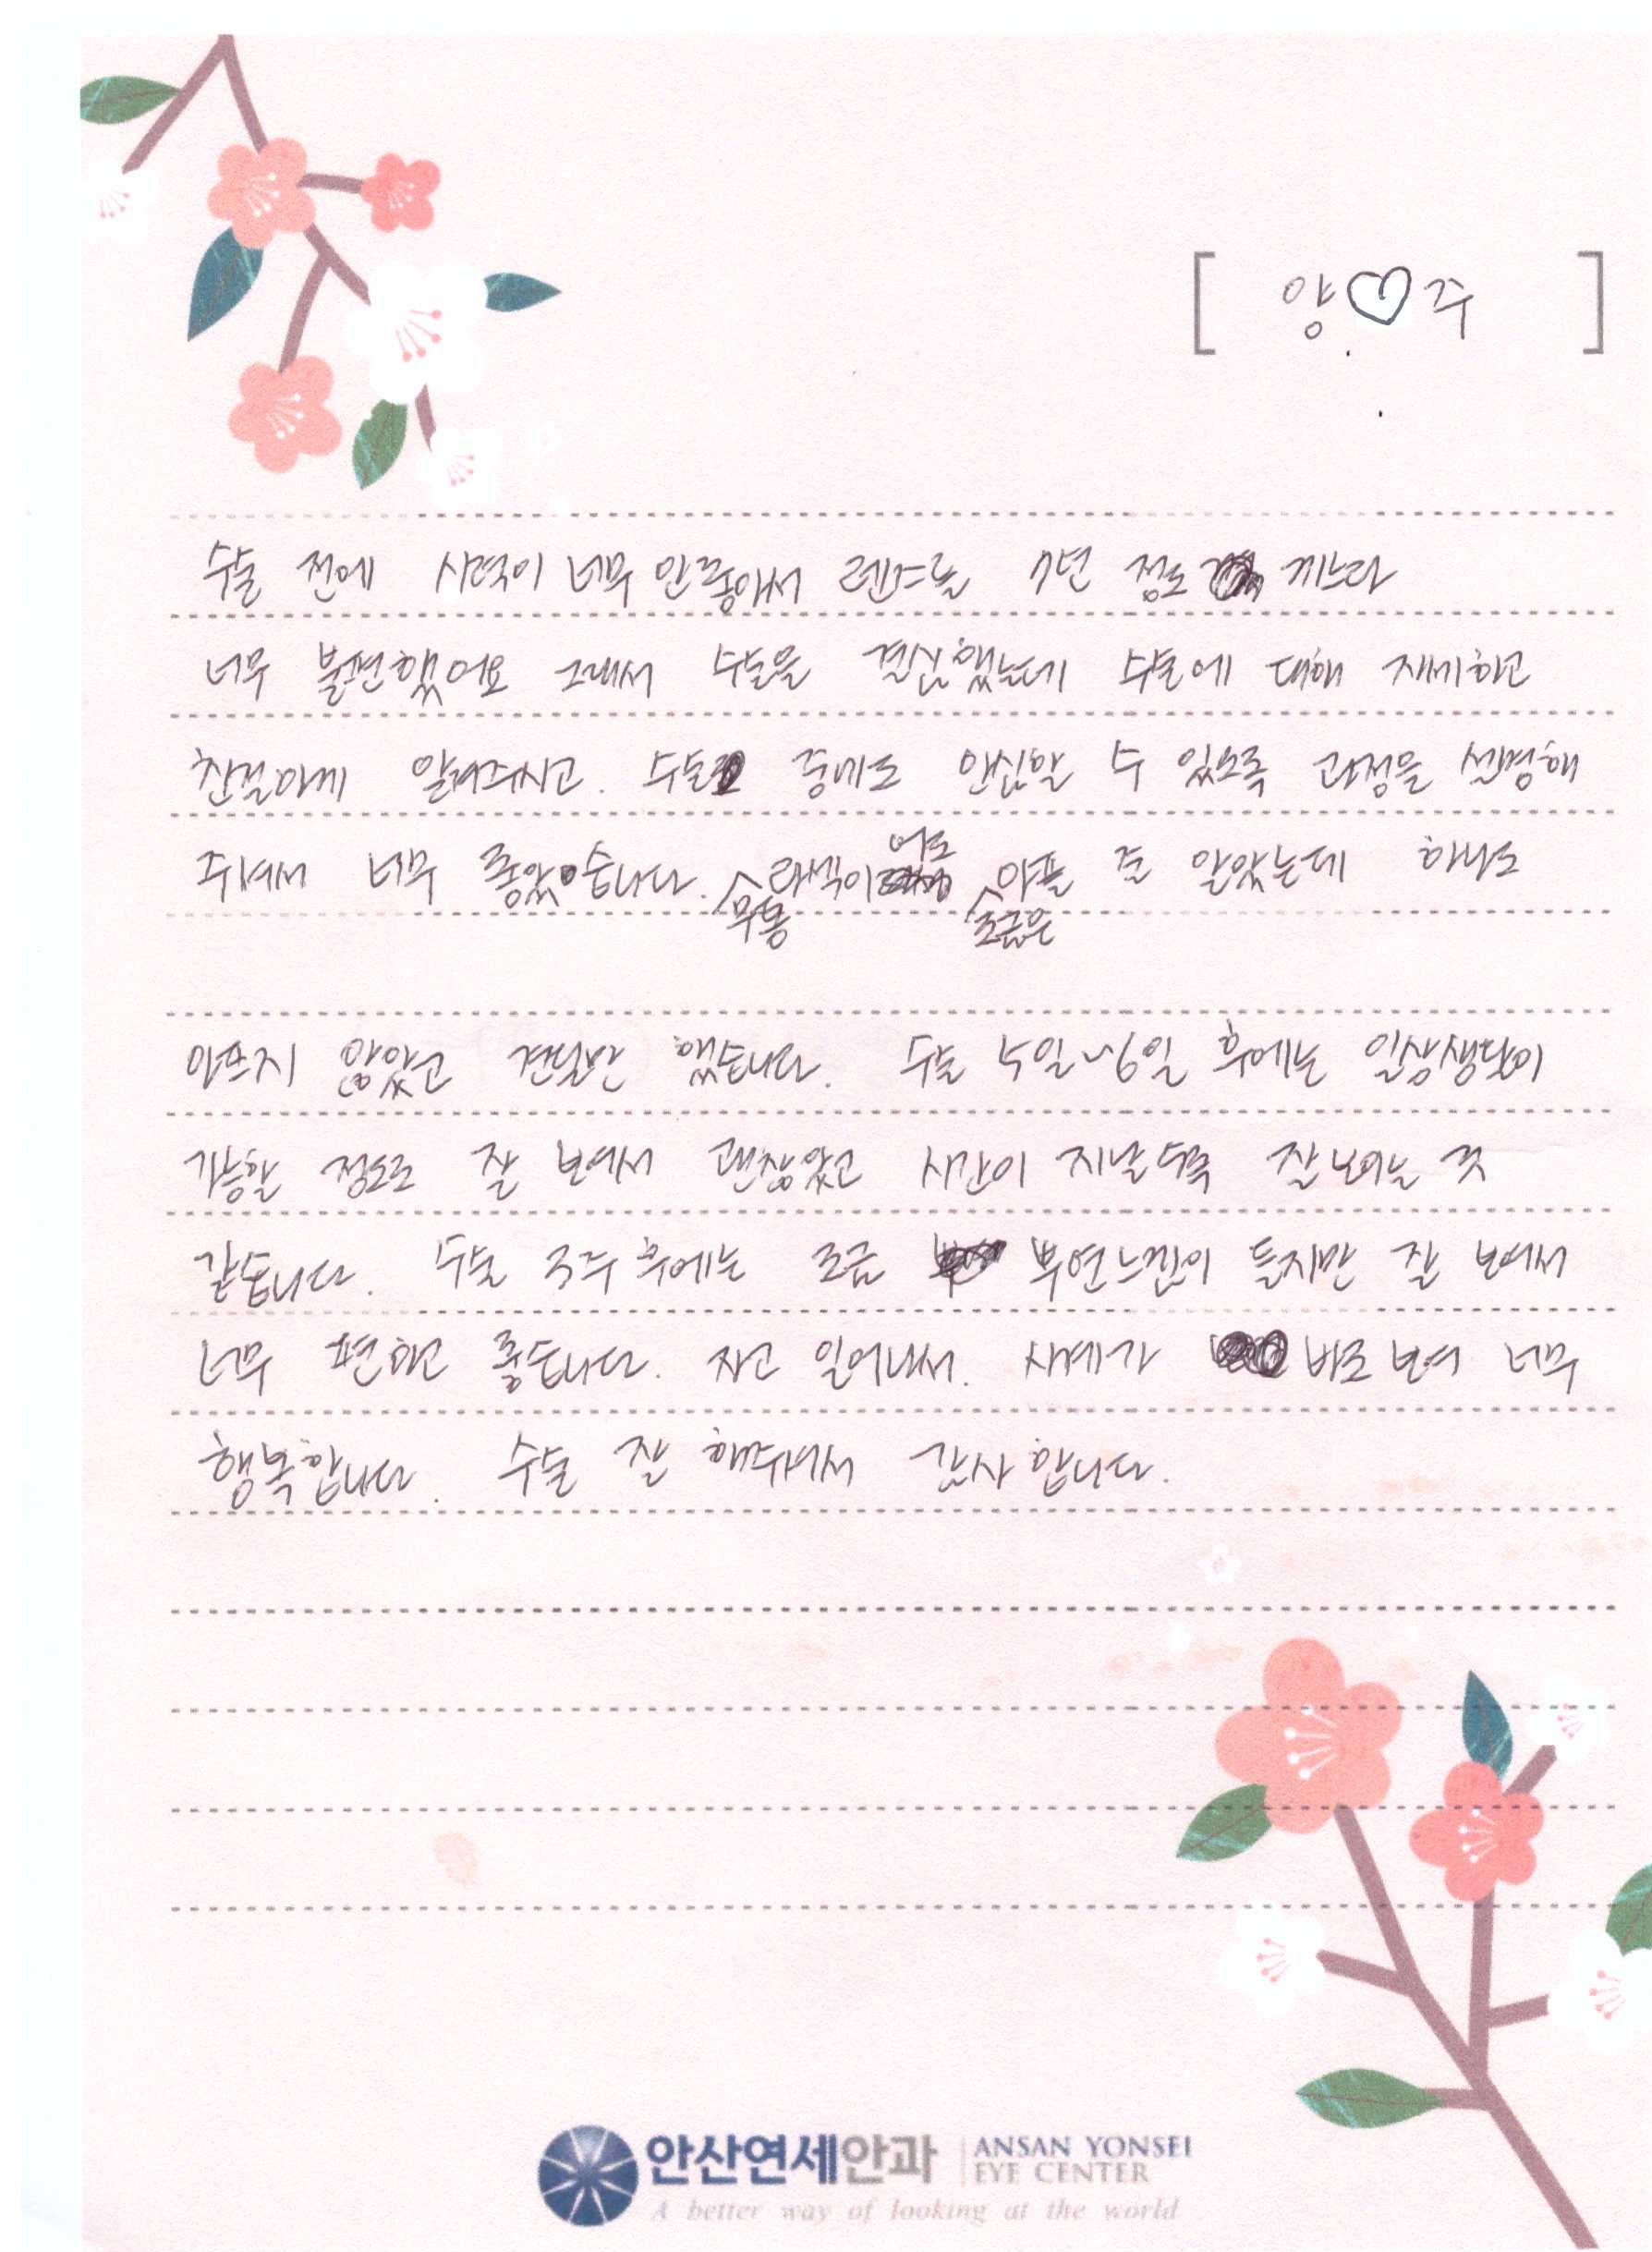 [ 양♡주 ]
수술 전에 시력이 너무 안좋아서 렌즈를 4년 정도 끼느라
너무 불편했어요 그래서 수술을 결심했는데 수술에 대해 자세하고
친절하게 알려주시고. 수술 중에도 안심할 수 있도록 과정을 설명해
주셔서 너무 좋았습니다. 무통 라섹이어도 조금은 아플 줄 알았는데 하나도
아프지 않았고 견딜만 했습니다. 수술 5일~6일 후에는 일상생활이
가능할 정도로 잘 보여서 괜찮았고 시간이 지날수록 잘보이는 것
같습니다. 수술 3주 후에는 조금 뿌연느낌이 들지만 잘 보여서
너무 편하고 좋습니다. 자고 일어나서. 시계가 바로 보여 너무
행복합니다. 수술 잘 해주셔서 감사합니다.
안산연세안과 ANSAN YONSEI
EYE CENTER
A better way of looking at the world